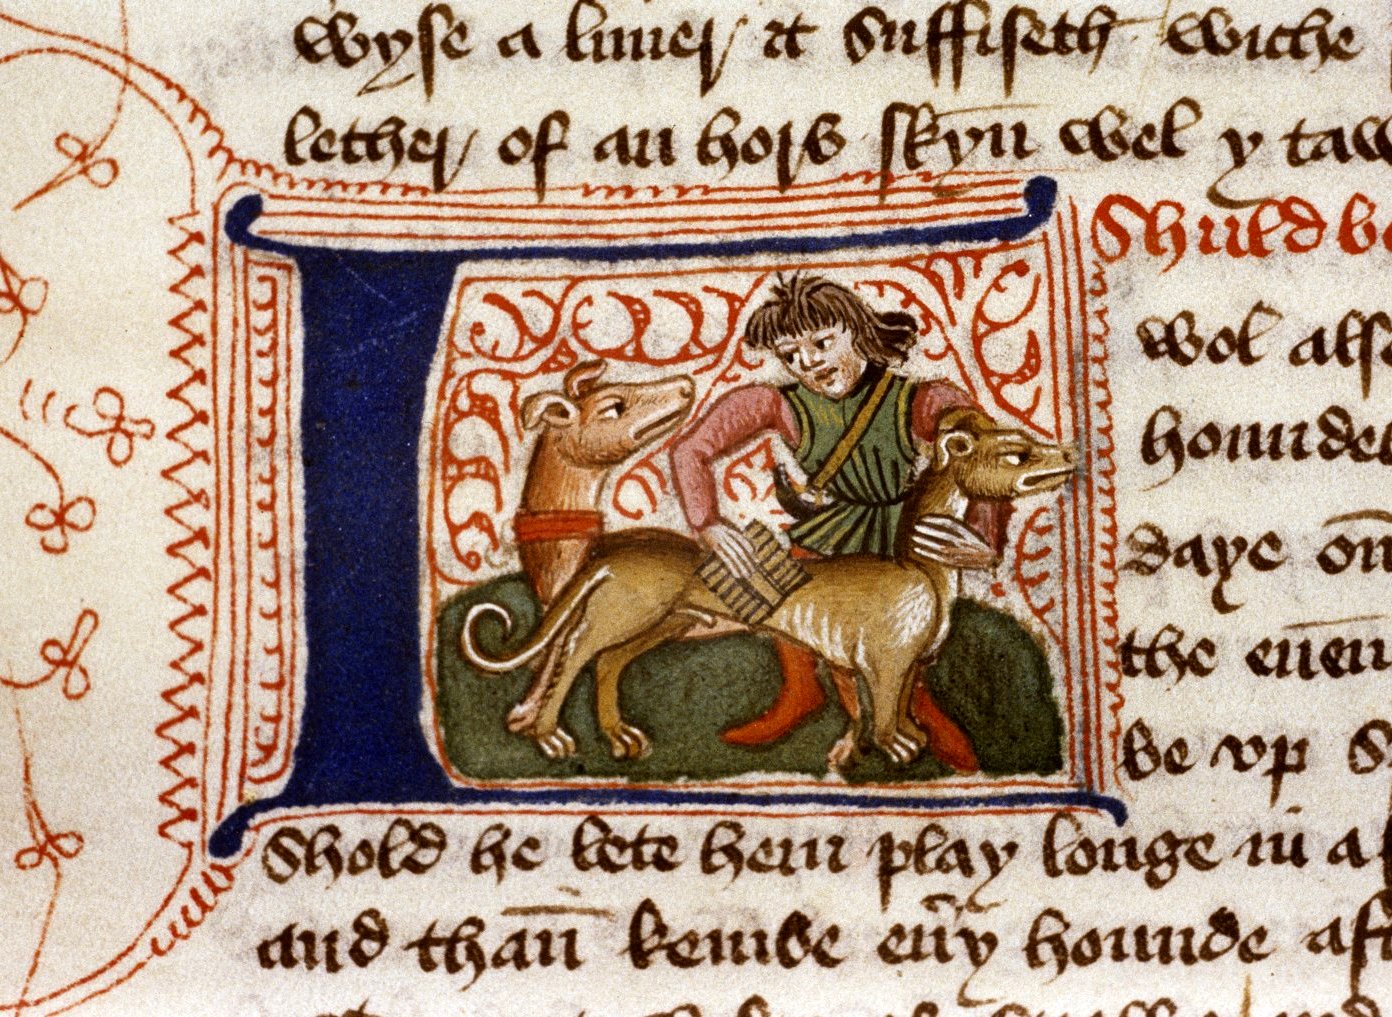 wyse a liuer at suffiseth wiche
lether of an hors skyn wel y taw
Shuld be
I
wol also
houndes
daye on
the euen
be vp
Shold he lete hem play longe in a
and than kembe euy hounde aft